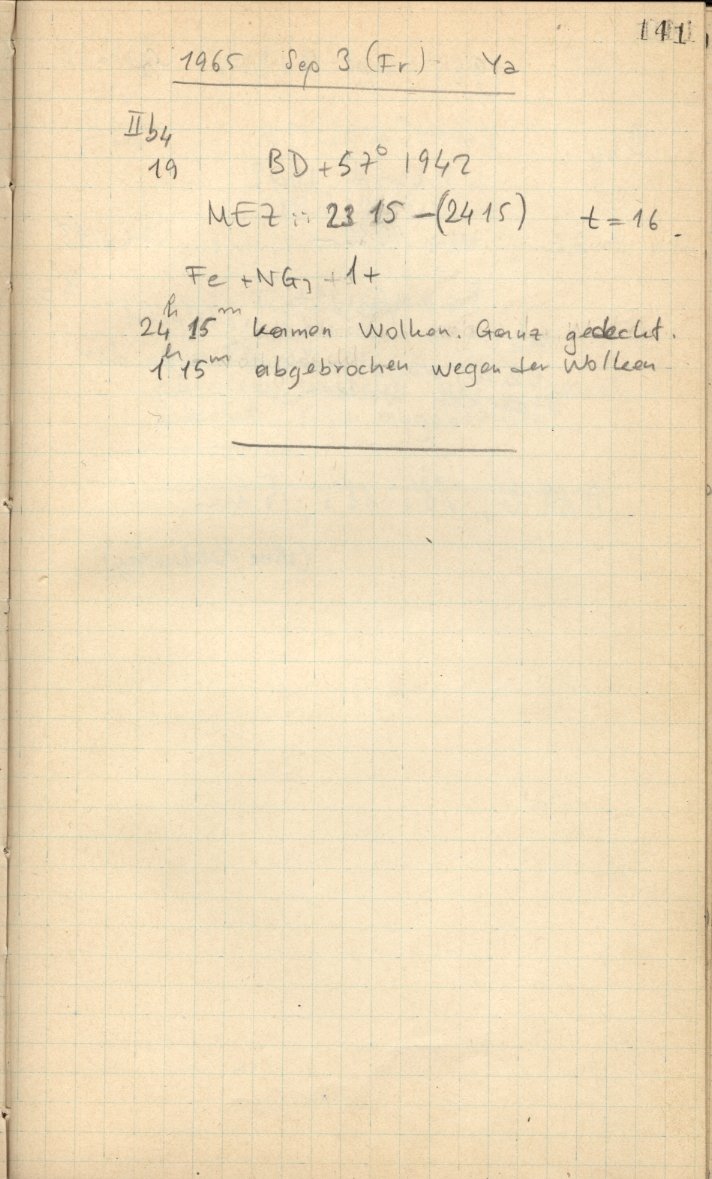 141
1965 Sep 3 (Fr) Ya
IIb4
19 BD +57° 1942
MEZ :: 23 15 - (24 15) t = 16
Fe + NG, 1+
24h 15m kamen Wolken. Ganz gedeckt.
1h 15m abgebrochen wegen der Wolken